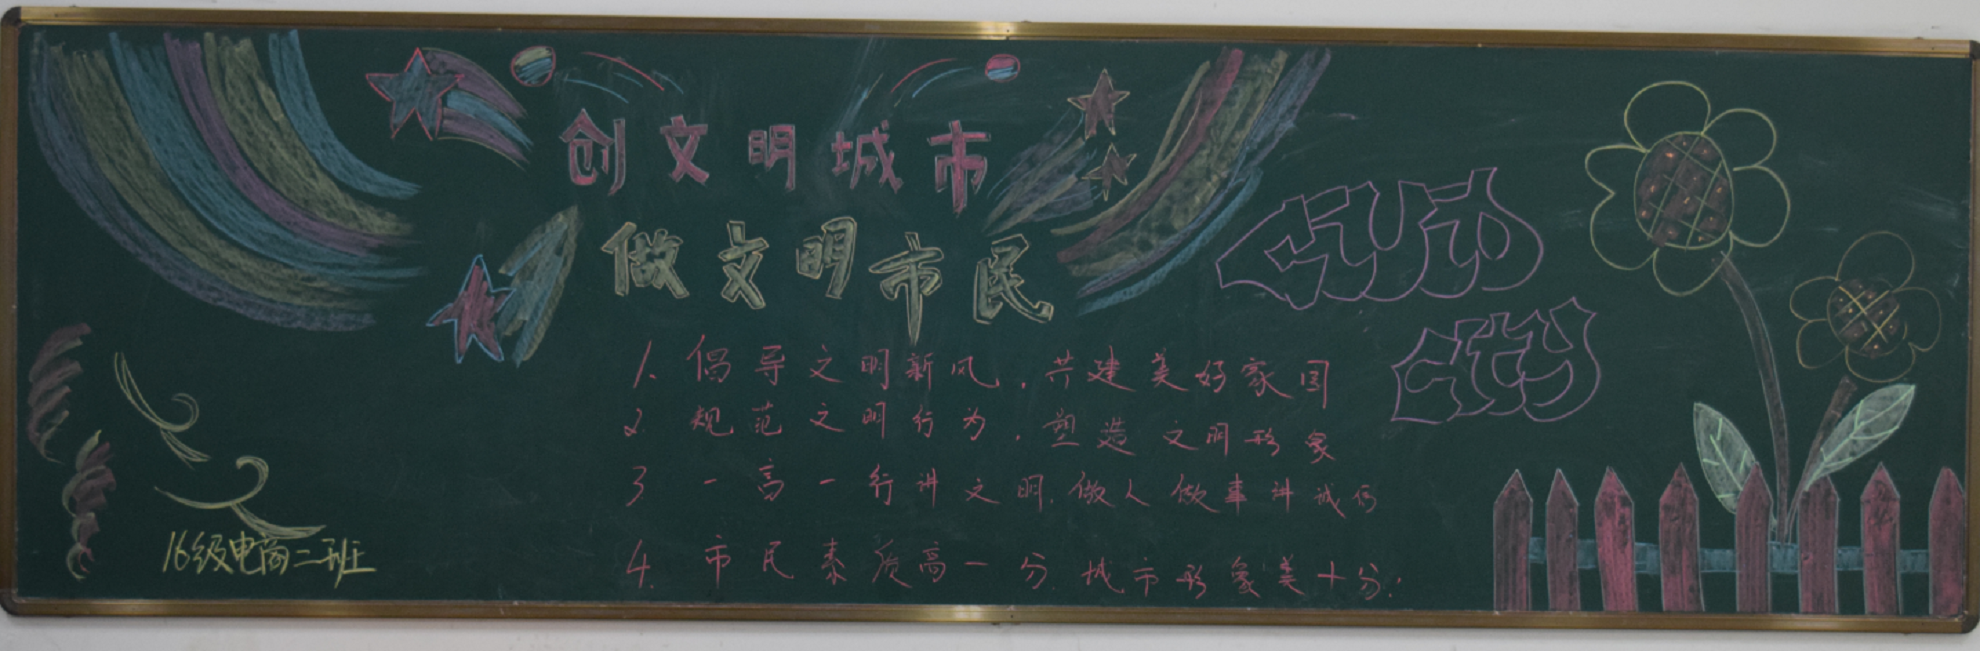 创文明城市
做文明市民
CIVID
City
1. 倡导文明新风，共建美好家园
2 规范文明行为，塑造文明形象
3 一高一行讲文明，做人做事讲诚信
4. 市民素质高一分，城市形象美十分！
16级电商二班